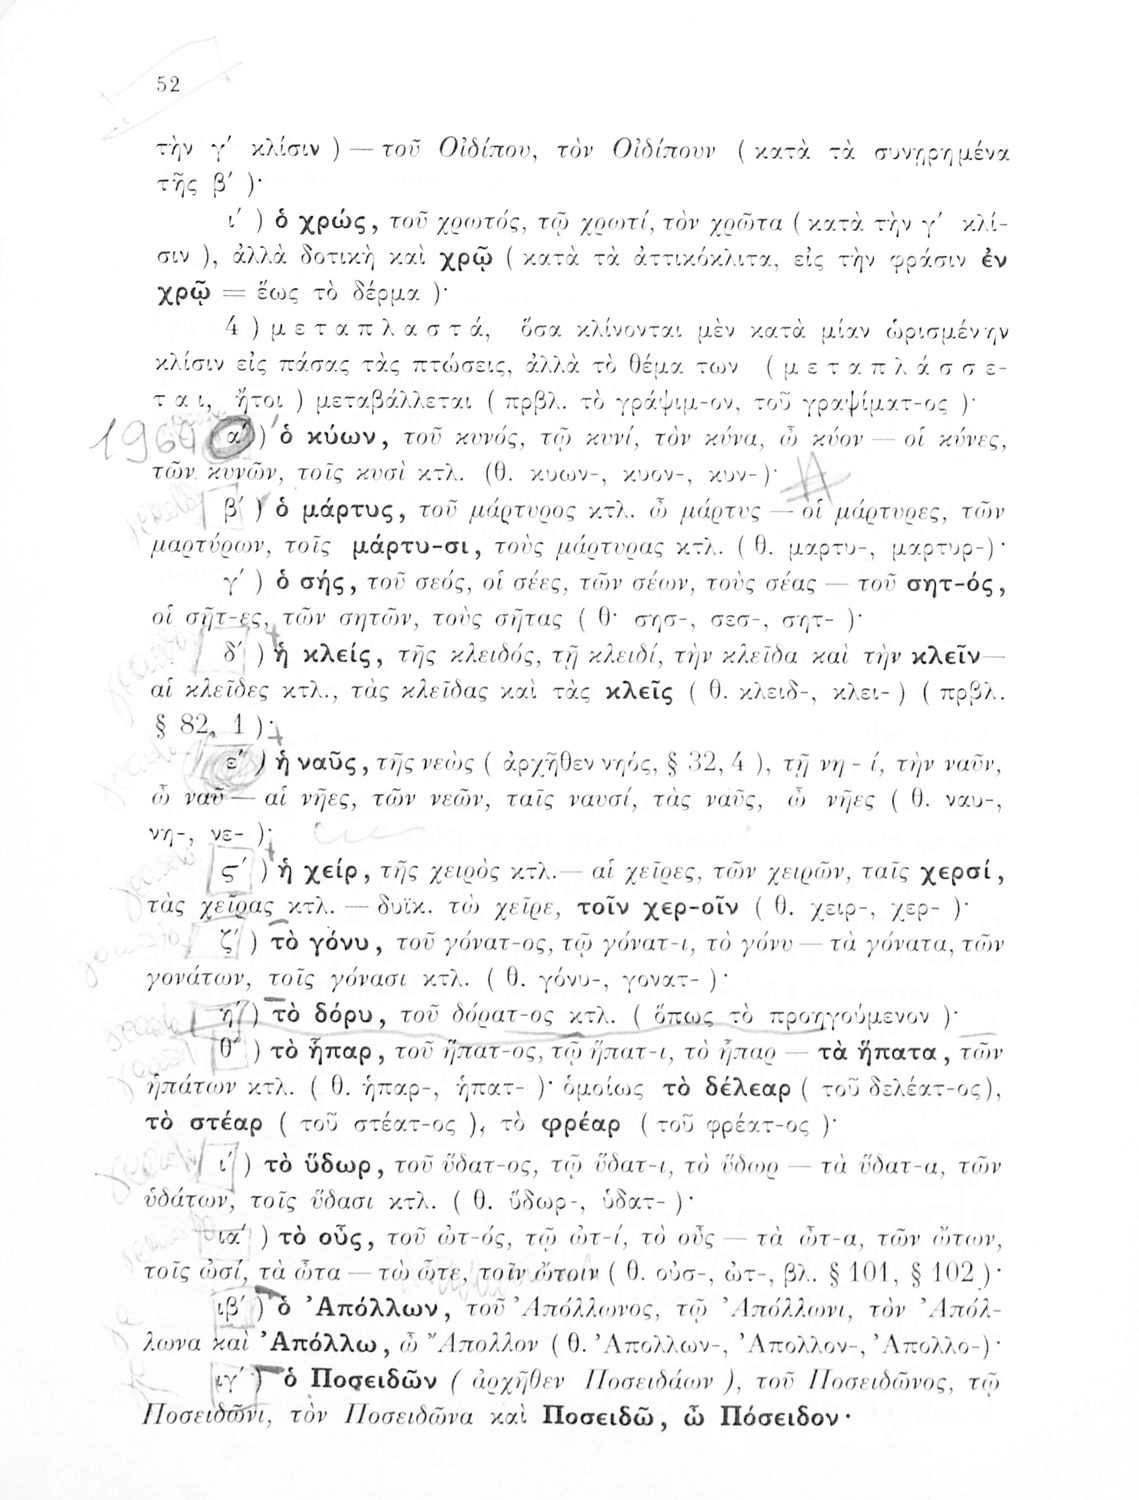 52
τὴν γ′ κλίσιν ) — τοῦ Οἰδίπου, τὸν Οἰδίπουν ( κατὰ τὰ συνῃρημένα
τῆς β′ )·
ι′ ) ὁ χρώς, τοῦ χρωτός, τῷ χρωτί, τὸν χρῶτα ( κατὰ τὴν γ′ κλί-
σιν ), ἀλλὰ δοτικὴ καὶ χρῷ ( κατὰ τὰ ἀττικόκλιτα, εἰς τὴν φράσιν ἐν
χρῷ = ἕως τὸ δέρμα )·
4 ) μεταπλαστά, ὅσα κλίνονται μὲν κατὰ μίαν ὡρισμένην
κλίσιν εἰς πάσας τὰς πτώσεις, ἀλλὰ τὸ θέμα των ( μεταπλάσσε-
ται, ἤτοι ) μεταβάλλεται ( πρβλ. τὸ γράψιμ-ον, τοῦ γραψίματ-ος )·
1969 α′ ) ὁ κύων, τοῦ κυνός, τῷ κυνί, τὸν κύνα, ὦ κύον — οἱ κύνες,
τῶν κυνῶν, τοῖς κυσὶ κτλ. (θ. κυων-, κυον-, κυν-)·
β′ ) ὁ μάρτυς, τοῦ μάρτυρος κτλ. ὦ μάρτυς — οἱ μάρτυρες, τῶν
μαρτύρων, τοῖς μάρτυ-σι, τοὺς μάρτυρας κτλ. ( θ. μαρτυ-, μαρτυρ-)·
γ′ ) ὁ σής, τοῦ σεός, οἱ σέες, τῶν σέων, τοὺς σέας — τοῦ σητ-ός,
οἱ σῆτ-ες, τῶν σητῶν, τοὺς σῆτας ( θ· σησ-, σεσ-, σητ- )·
δ′ ) ἡ κλείς, τῆς κλειδός, τῇ κλειδί, τὴν κλεῖδα καὶ τὴν κλεῖν—
αἱ κλεῖδες κτλ., τὰς κλεῖδας καὶ τὰς κλεῖς ( θ. κλειδ-, κλει- ) ( πρβλ.
§ 82, 1 )·
ε′ ) ἡ ναῦς, τῆς νεὼς ( ἀρχῆθεν νηός, § 32, 4 ), τῇ νη - ί, τὴν ναῦν,
ὦ ναῦ — αἱ νῆες, τῶν νεῶν, ταῖς ναυσί, τὰς ναῦς, ὦ νῆες ( θ. ναυ-,
νη-, νε- )·
ς′ ) ἡ χείρ, τῆς χειρὸς κτλ.— αἱ χεῖρες, τῶν χειρῶν, ταῖς χερσί,
τὰς χεῖρας κτλ. — δυϊκ. τὼ χεῖρε, τοῖν χερ-οῖν ( θ. χειρ-, χερ- )·
ζ′ ) τὸ γόνυ, τοῦ γόνατ-ος, τῷ γόνατ-ι, τὸ γόνυ — τὰ γόνατα, τῶν
γονάτων, τοῖς γόνασι κτλ. ( θ. γόνυ-, γονατ- )·
η′ ) τὸ δόρυ, τοῦ δόρατ-ος κτλ. ( ὅπως τὸ προηγούμενον )·
θ′ ) τὸ ἧπαρ, τοῦ ἥπατ-ος, τῷ ἥπατ-ι, τὸ ἧπαρ — τὰ ἥπατα, τῶν
ἡπάτων κτλ. ( θ. ἡπαρ-, ἡπατ- )· ὁμοίως τὸ δέλεαρ ( τοῦ δελέατ-ος),
τὸ στέαρ ( τοῦ στέατ-ος ), τὸ φρέαρ ( τοῦ φρέατ-ος )·
ι′ ) τὸ ὕδωρ, τοῦ ὕδατ-ος, τῷ ὕδατ-ι, τὸ ὕδωρ — τὰ ὕδατ-α, τῶν
ὑδάτων, τοῖς ὕδασι κτλ. ( θ. ὕδωρ-, ὑδατ- )·
ια′ ) τὸ οὖς, τοῦ ὠτ-ός, τῷ ὠτ-ί, τὸ οὖς — τὰ ὦτ-α, τῶν ὤτων,
τοῖς ὠσί, τὰ ὦτα — τὼ ὦτε, τοῖν ὤτοιν ( θ. οὐσ-, ὠτ-, βλ. § 101, § 102 )·
ιβ′ ) ὁ Ἀπόλλων, τοῦ Ἀπόλλωνος, τῷ Ἀπόλλωνι, τὸν Ἀπόλ-
λωνα καὶ Ἀπόλλω, ὦ Ἄπολλον ( θ. Ἀπολλων-, Ἀπολλον-, Ἀπολλο-)·
ιγ′ ) ὁ Ποσειδῶν ( ἀρχῆθεν Ποσειδάων ), τοῦ Ποσειδῶνος, τῷ
Ποσειδῶνι, τὸν Ποσειδῶνα καὶ Ποσειδῶ, ὦ Πόσειδον·